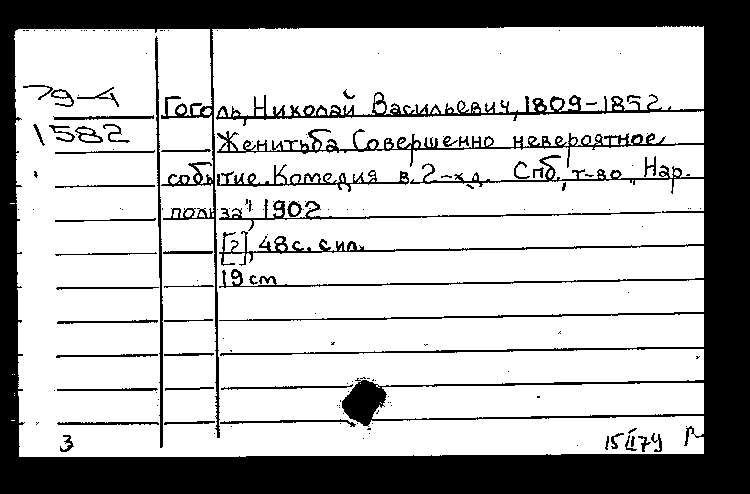 79-4
1582
Гоголь, Николай Васильевич, 1809-1852.
Женитьба. Совершенно невероятное
событие. Комедия в 2-х д. Спб., т-во „Нар.
польза", 1902.
[2], 48 с. с ил.
19 cm
3
15 II 79